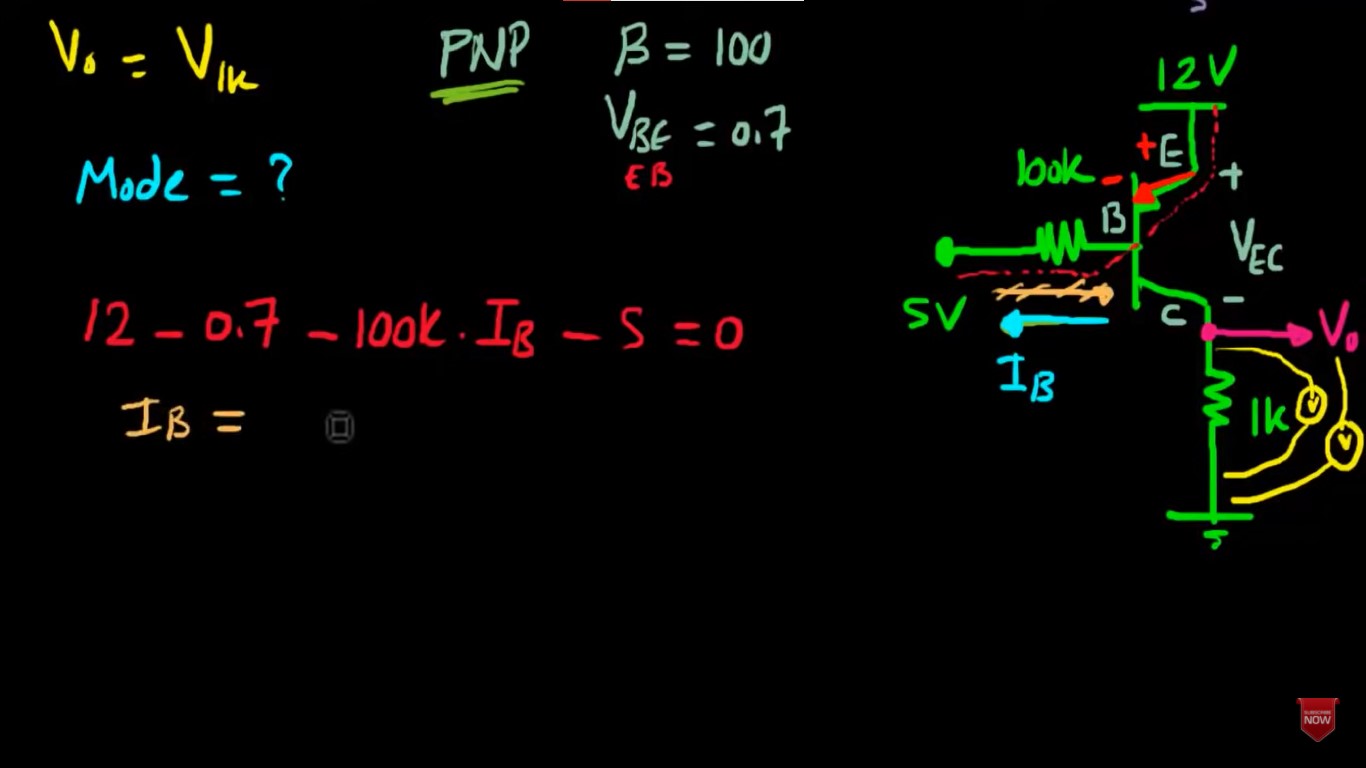 V₀ = V1k
PNP
β = 100
VBE = 0.7
EB
Mode = ?
12 - 0.7 - 100k · IB - 5 = 0
IB =
12V
+ E
100k -
+
B
VEC
5V
-
C
V₀
IB
1k
V
V
SUBSCRIBE
NOW